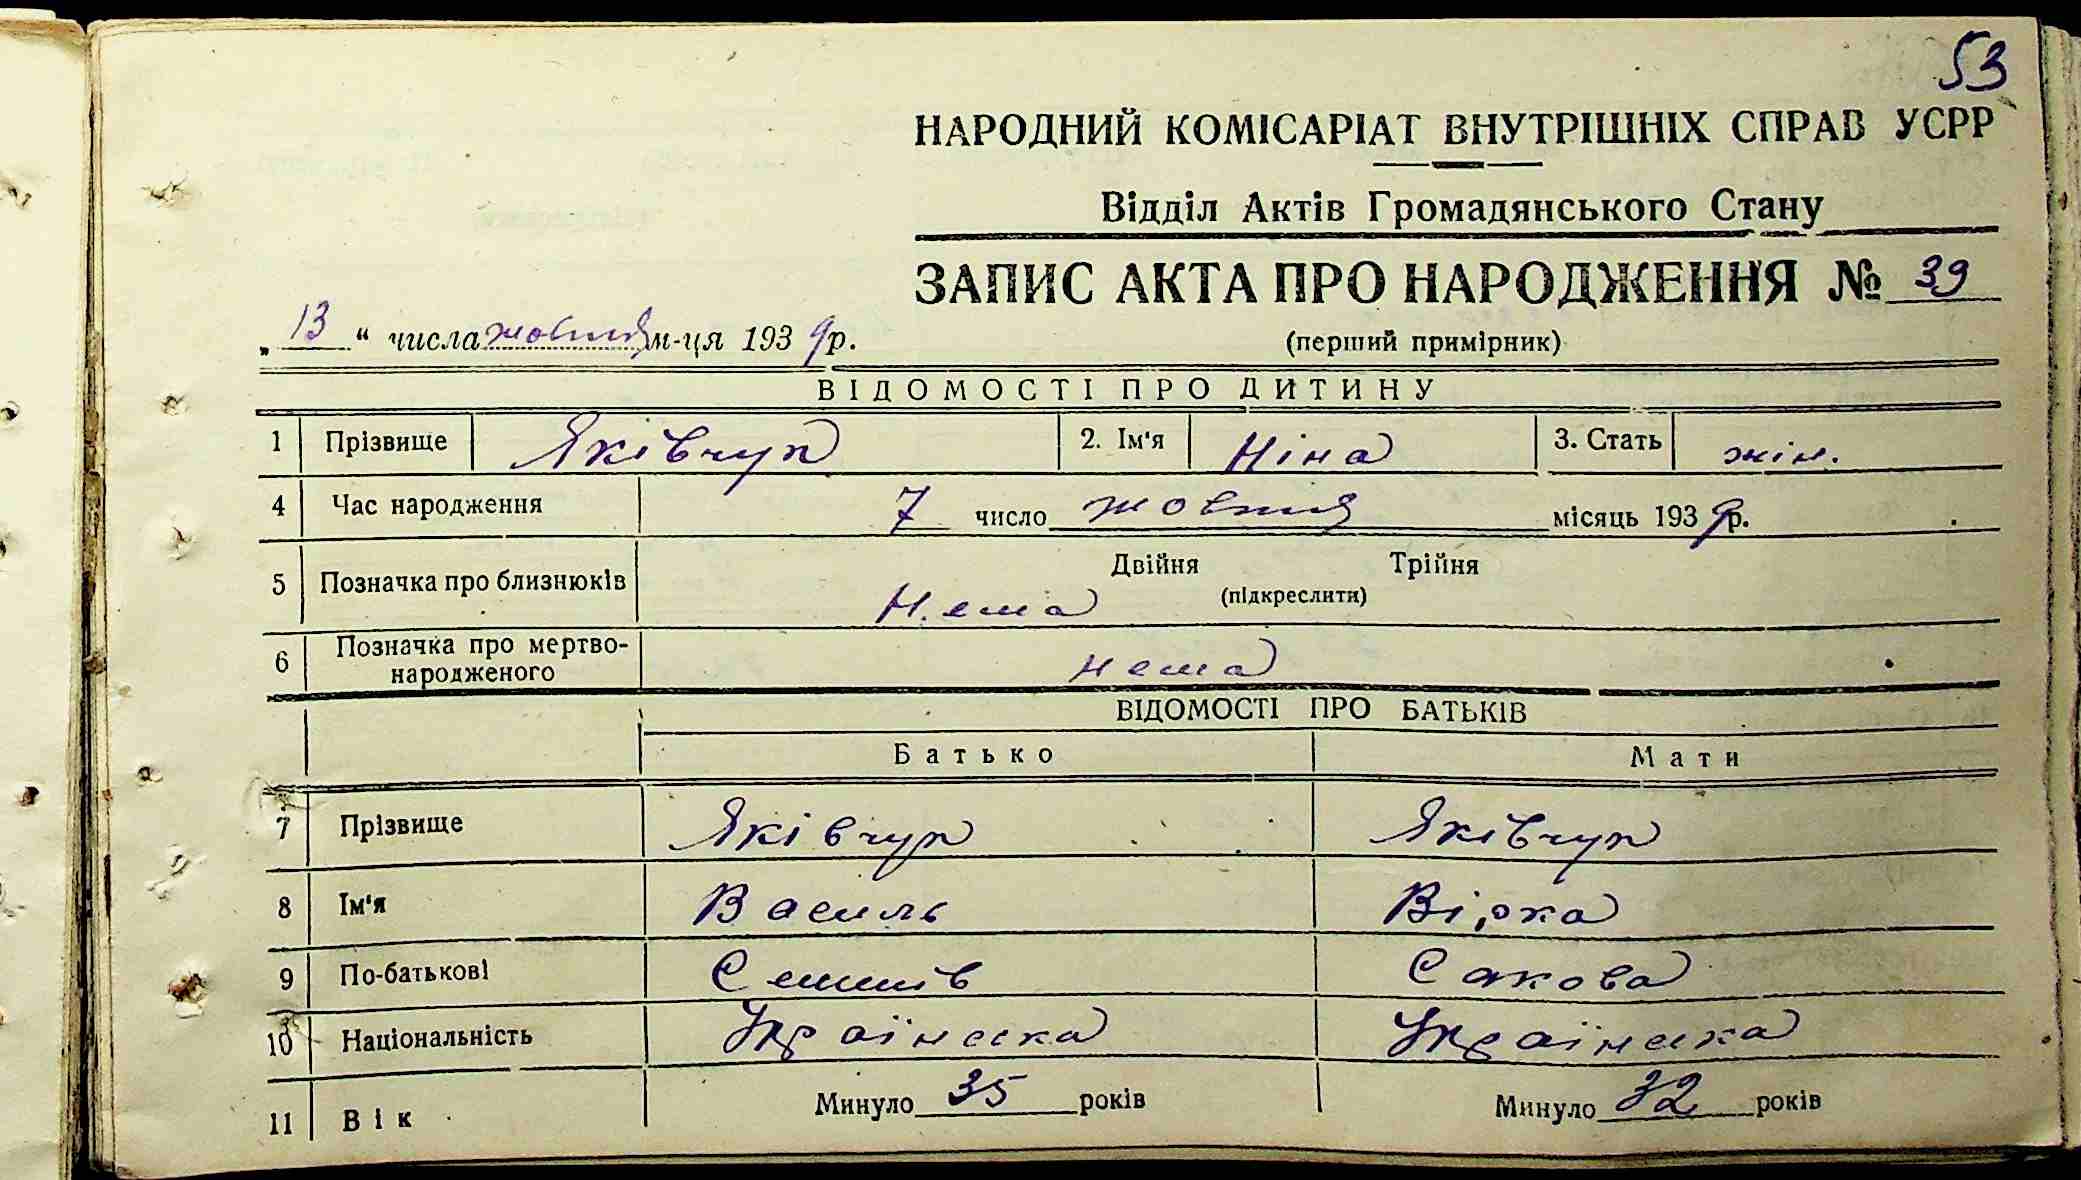 53
НАРОДНИЙ КОМІСАРІАТ ВНУТРІШНІХ СПРАВ УСРР
Відділ Актів Громадянського Стану
ЗАПИС АКТА ПРО НАРОДЖЕННЯ № 39
„ 13 “ числа жовтня м-ця 1939 р.
(перший примірник)
ВІДОМОСТІ ПРО ДИТИНУ
1 Прізвище Яківчук 2. Ім'я Ніна 3. Стать жін.
4 Час народження 7 число жовтня місяць 1939 р.
5 Позначка про близнюків Двійня Трійня
Нема (підкреслити)
6 Позначка про мертво-
народженого нема
ВІДОМОСТІ ПРО БАТЬКІВ
Батько Мати
7 Прізвище Яківчук Яківчук
8 Ім'я Василь Вірка
9 По-батькові
10 Національність Українська Українська
11 Вік Минуло 35 років Минуло 32 років